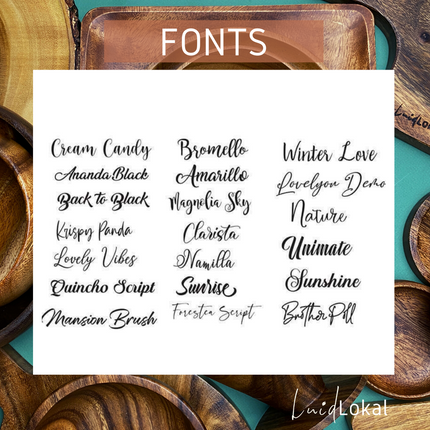 FONTS
Cream Candy
Ananda Black
Back to Black
Krispy Panda
Lovely Vibes
Quincho Script
Mansion Brush
Bromello
Amarillo
Magnolia Sky
Clarista
Namilla
Sunrise
Forestea Script
Winter Love
Lovelyou Demo
Nature
Unimate
Sunshine
Brother Pill
LuidLokal
LuidLokal